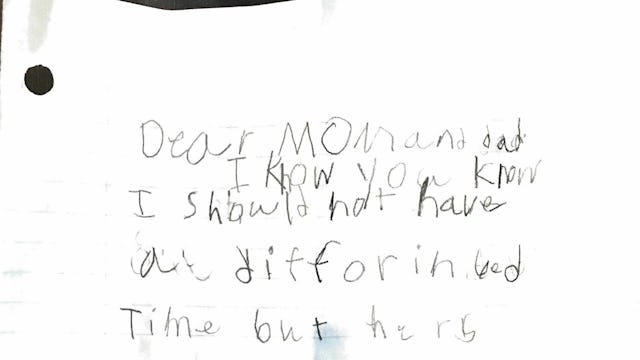 Dear MOM and dad
I know you know
I should not have
a differin bed
Time but hers